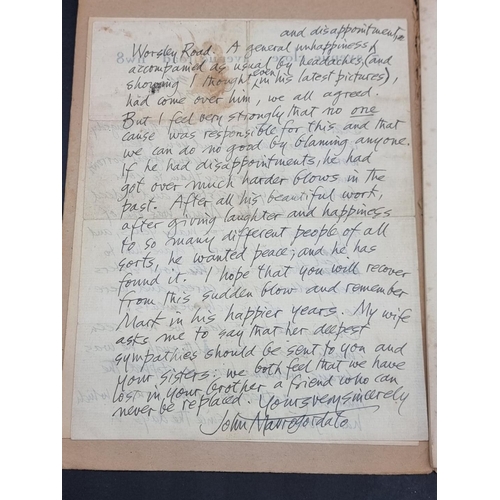 and disappointment
Worsley Road. A general unhappiness
accompanied as usual by headaches (and
showing I thought even in his latest pictures),
had come over him, we all agreed.
But I feel very strongly that no one
cause was responsible for this and that
we can do no good by blaming anyone.
If he had disappointments, he had
got over much harder blows in the
past. After all his beautiful work,
after giving laughter and happiness
to so many different people of all
sorts, he wanted peace, and he has
found it. I hope that you will recover
from this sudden blow and remember
Mark in his happier years. My wife
asks me to say that her deepest
sympathies should be sent to you and
your sisters: we both feel that we have
lost in your brother a friend who can
never be replaced. Yours very sincerely
John Mavrogordato